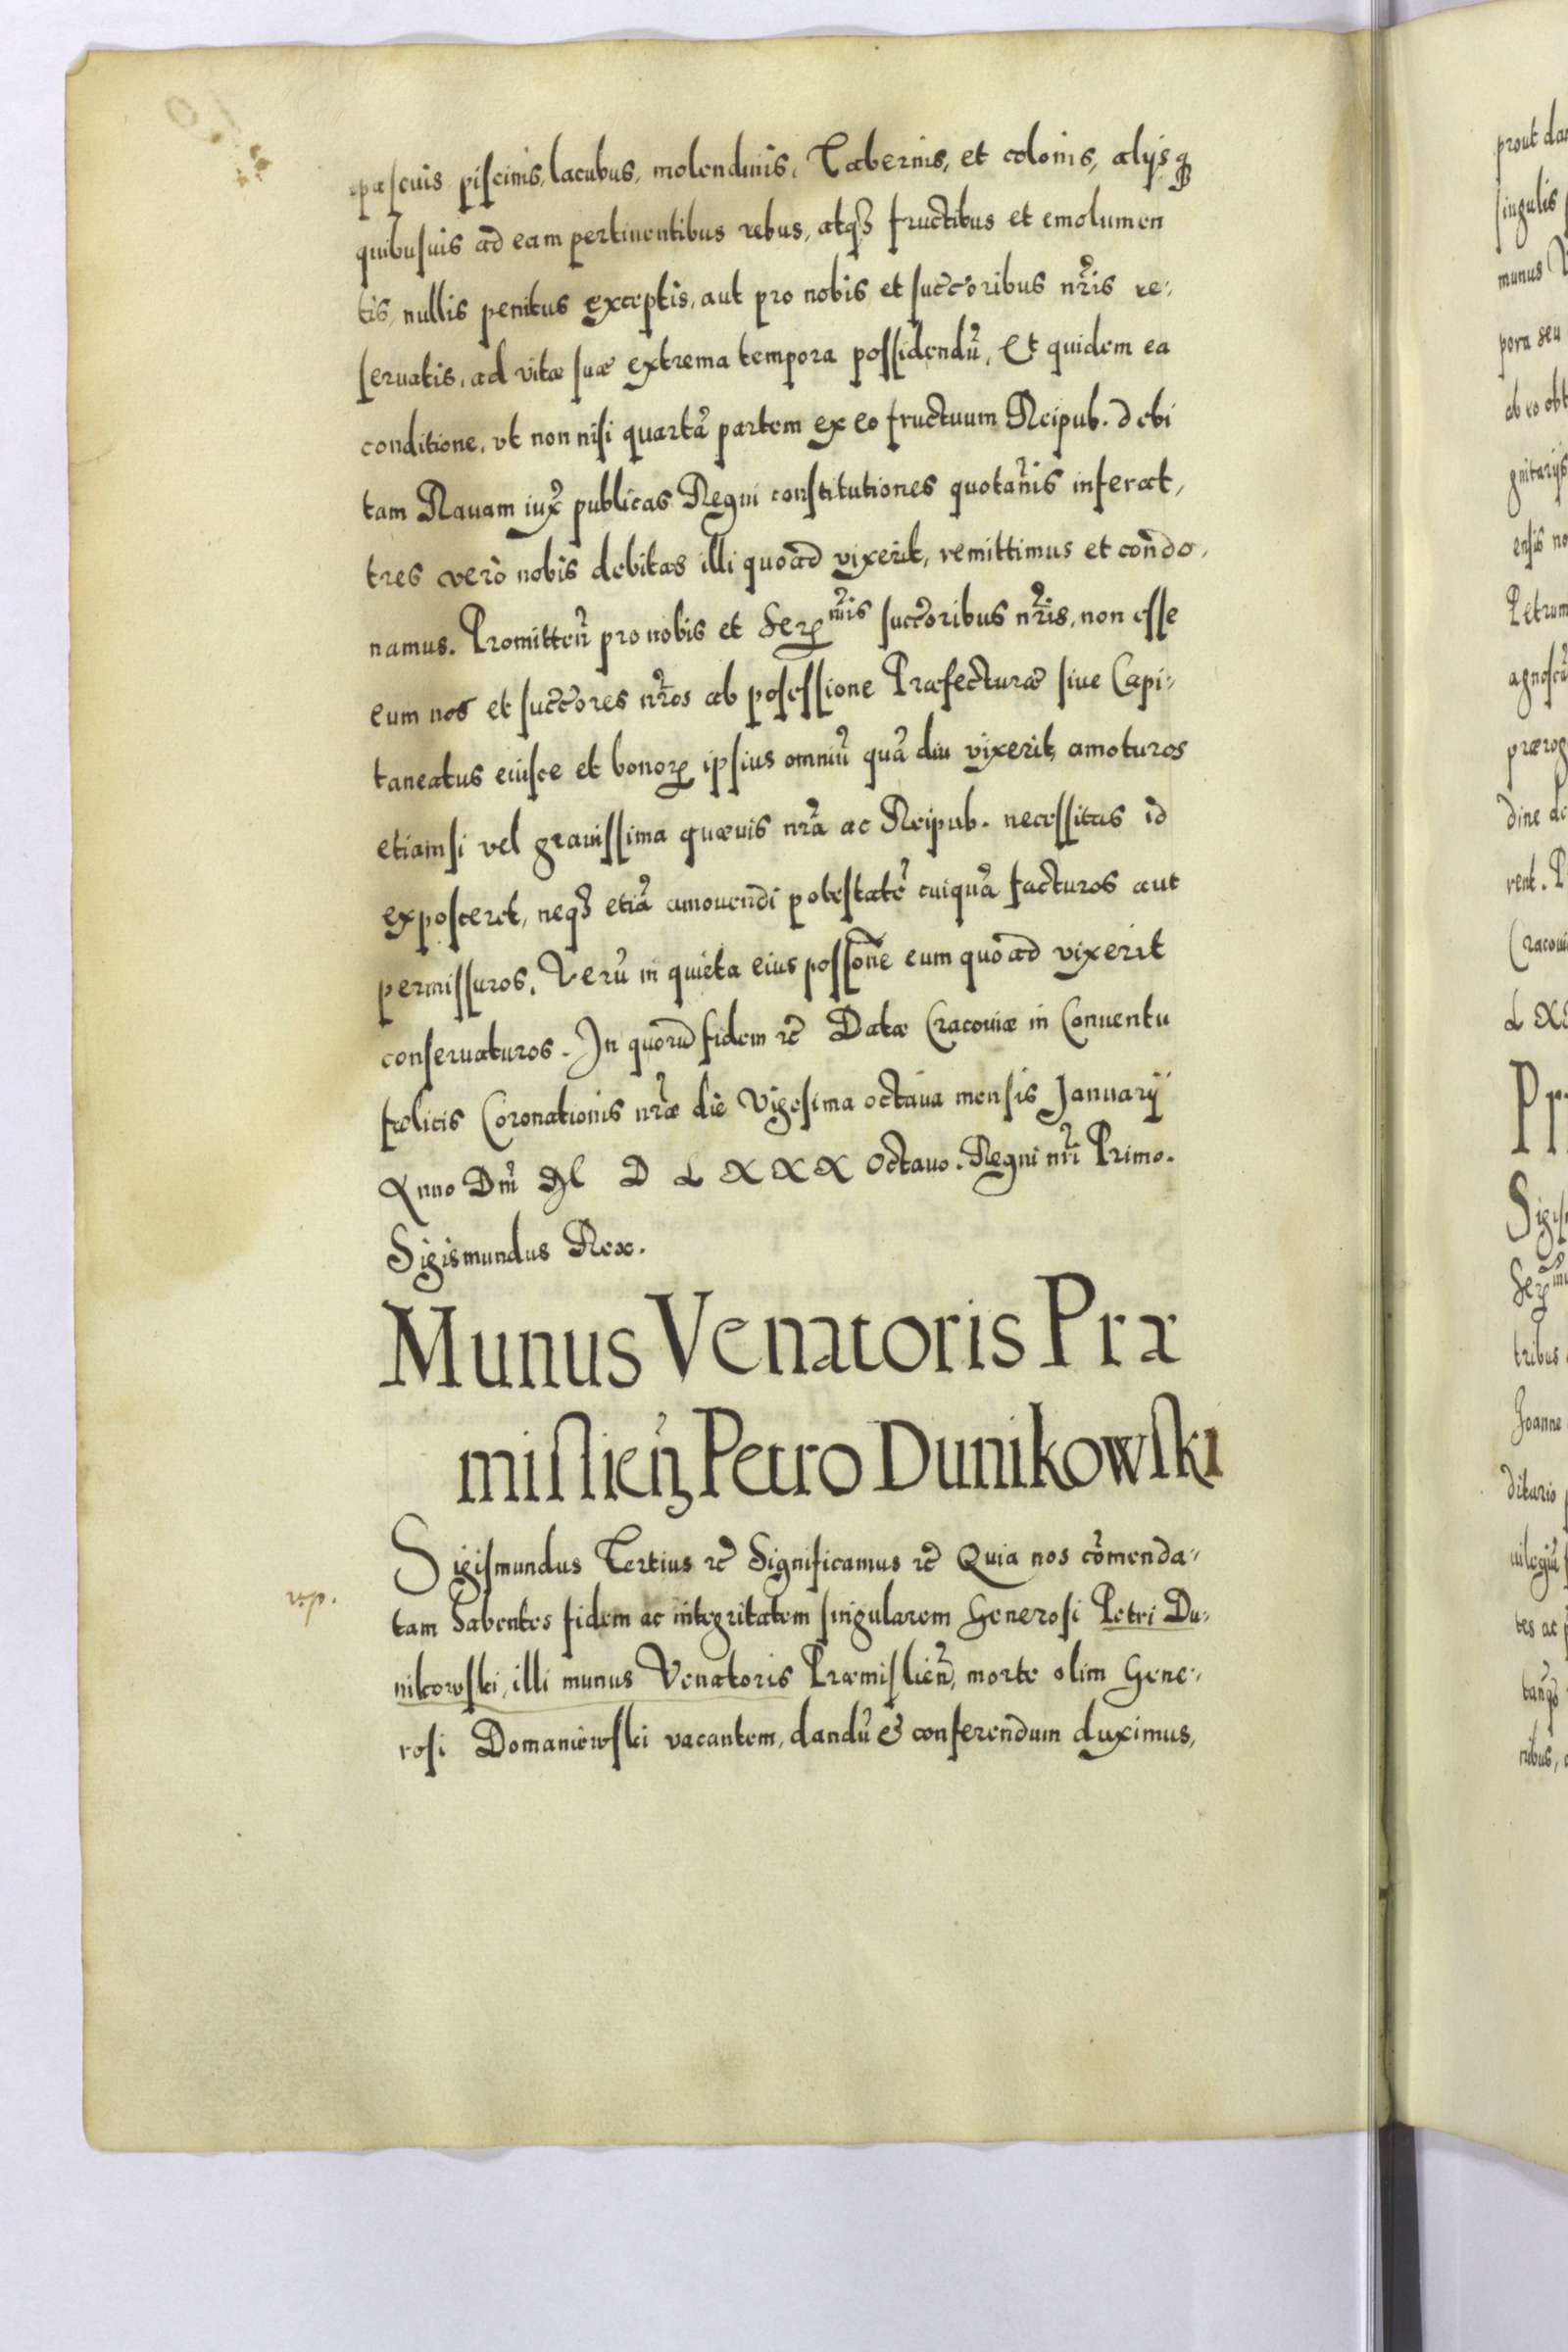 pascuis piscinis, lacubus, molendinis, Tabernis, et colonis, alijsq₃
quibusuis ad eam pertinentibus rebus, atq₃ fructibus et emolumen
tis, nullis penitus exceptis, aut pro nobis et succ̃oribus nr̃is re-
seruatis, ad vitæ suæ extrema tempora possidendũ, Et quidem ea
conditione, vt non nisi quartã partem ex eo fructuum Reipub. debi
tam Rauam iux̃ publicas Regni constitutiones quotañis inferat,
tres verò nobis debitas illi quoad vixerit, remittimus et condo-
namus. Promitteñ pro nobis et Serꝝmis succ̃oribus nr̃is, non esse
eum nos et succ̃ores nr̃os ab posessione Præfecturæ siue Capi-
taneatus eiusce et bonoꝝ ipsius omniũ quã diu vixerit, amoturos
etiamsi vel grauissima quæuis nr̃a ac Reipub. necessitas id
exposceret, neq₃ etiã amouendi potestatẽ cuiquã facturos aut
permissuros, Verũ in quieta eius possõne eum quoad vixerit
conseruaturos. In quorũ fidem ꝛc̃ Datæ Cracouiæ in Conuentu
fœlicis Coronationis nr̃æ die Vigesima octaua mensis Januarij
Anno Dnĩ M D L X X X Octauo. Regni nr̃i Primo.
Sigismundus Rex.
Munus Venatoris Præ
mislień Petro Dunikowski
Sigismundus Tertius ꝛc̃ Significamus ꝛc̃ Quia nos cõmenda-
tam habentes fidem ac integritatem singularem Generosi Petri Du-
nikowski, illi munus Venatoris Præmislień, morte olim Gene-
rosi Domaniewski vacantem, dandũ & conferendum duximus,